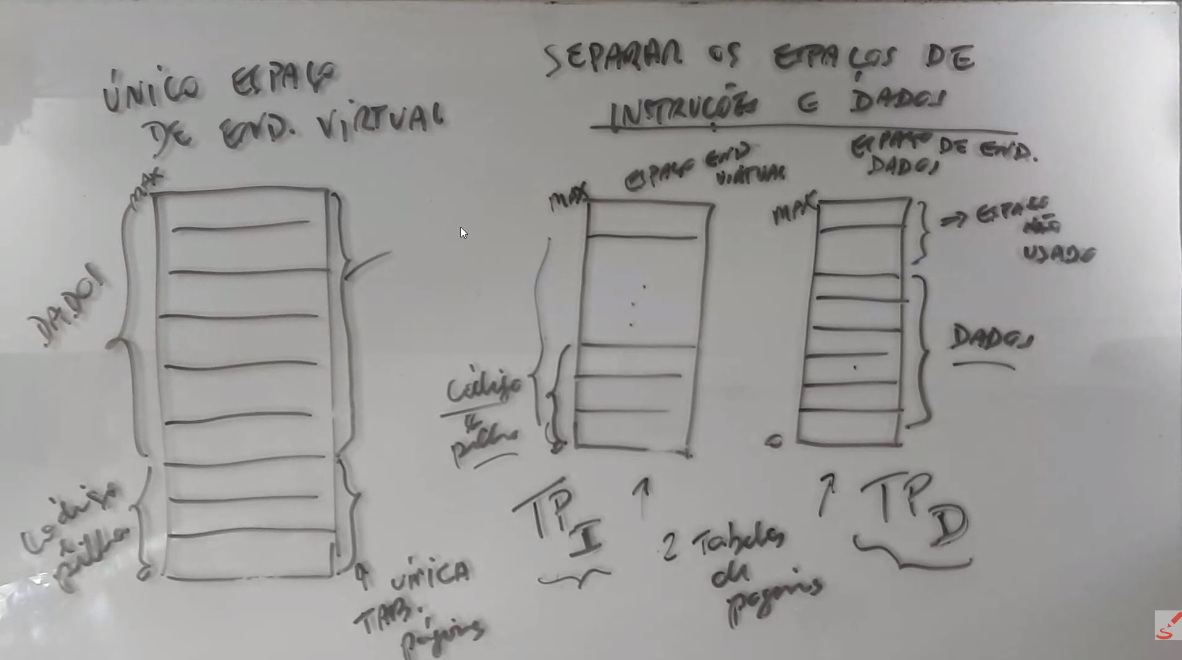 ÚNICO ESPAÇO
DE END. VIRTUAL
MAX
DADOS
Código
e
pilha
0
ÚNICA
TAB.
páginas
SEPARAR OS ESPAÇOS DE
INSTRUÇÕES E DADOS
ESPAÇO END
VIRTUAL
MAX
Código
e
pilha
0
TP I
2 Tabelas
de
páginas
ESPAÇO DE END.
DADOS
MAX
⇒ ESPAÇO
NÃO
USADO
DADOS
0
TP D